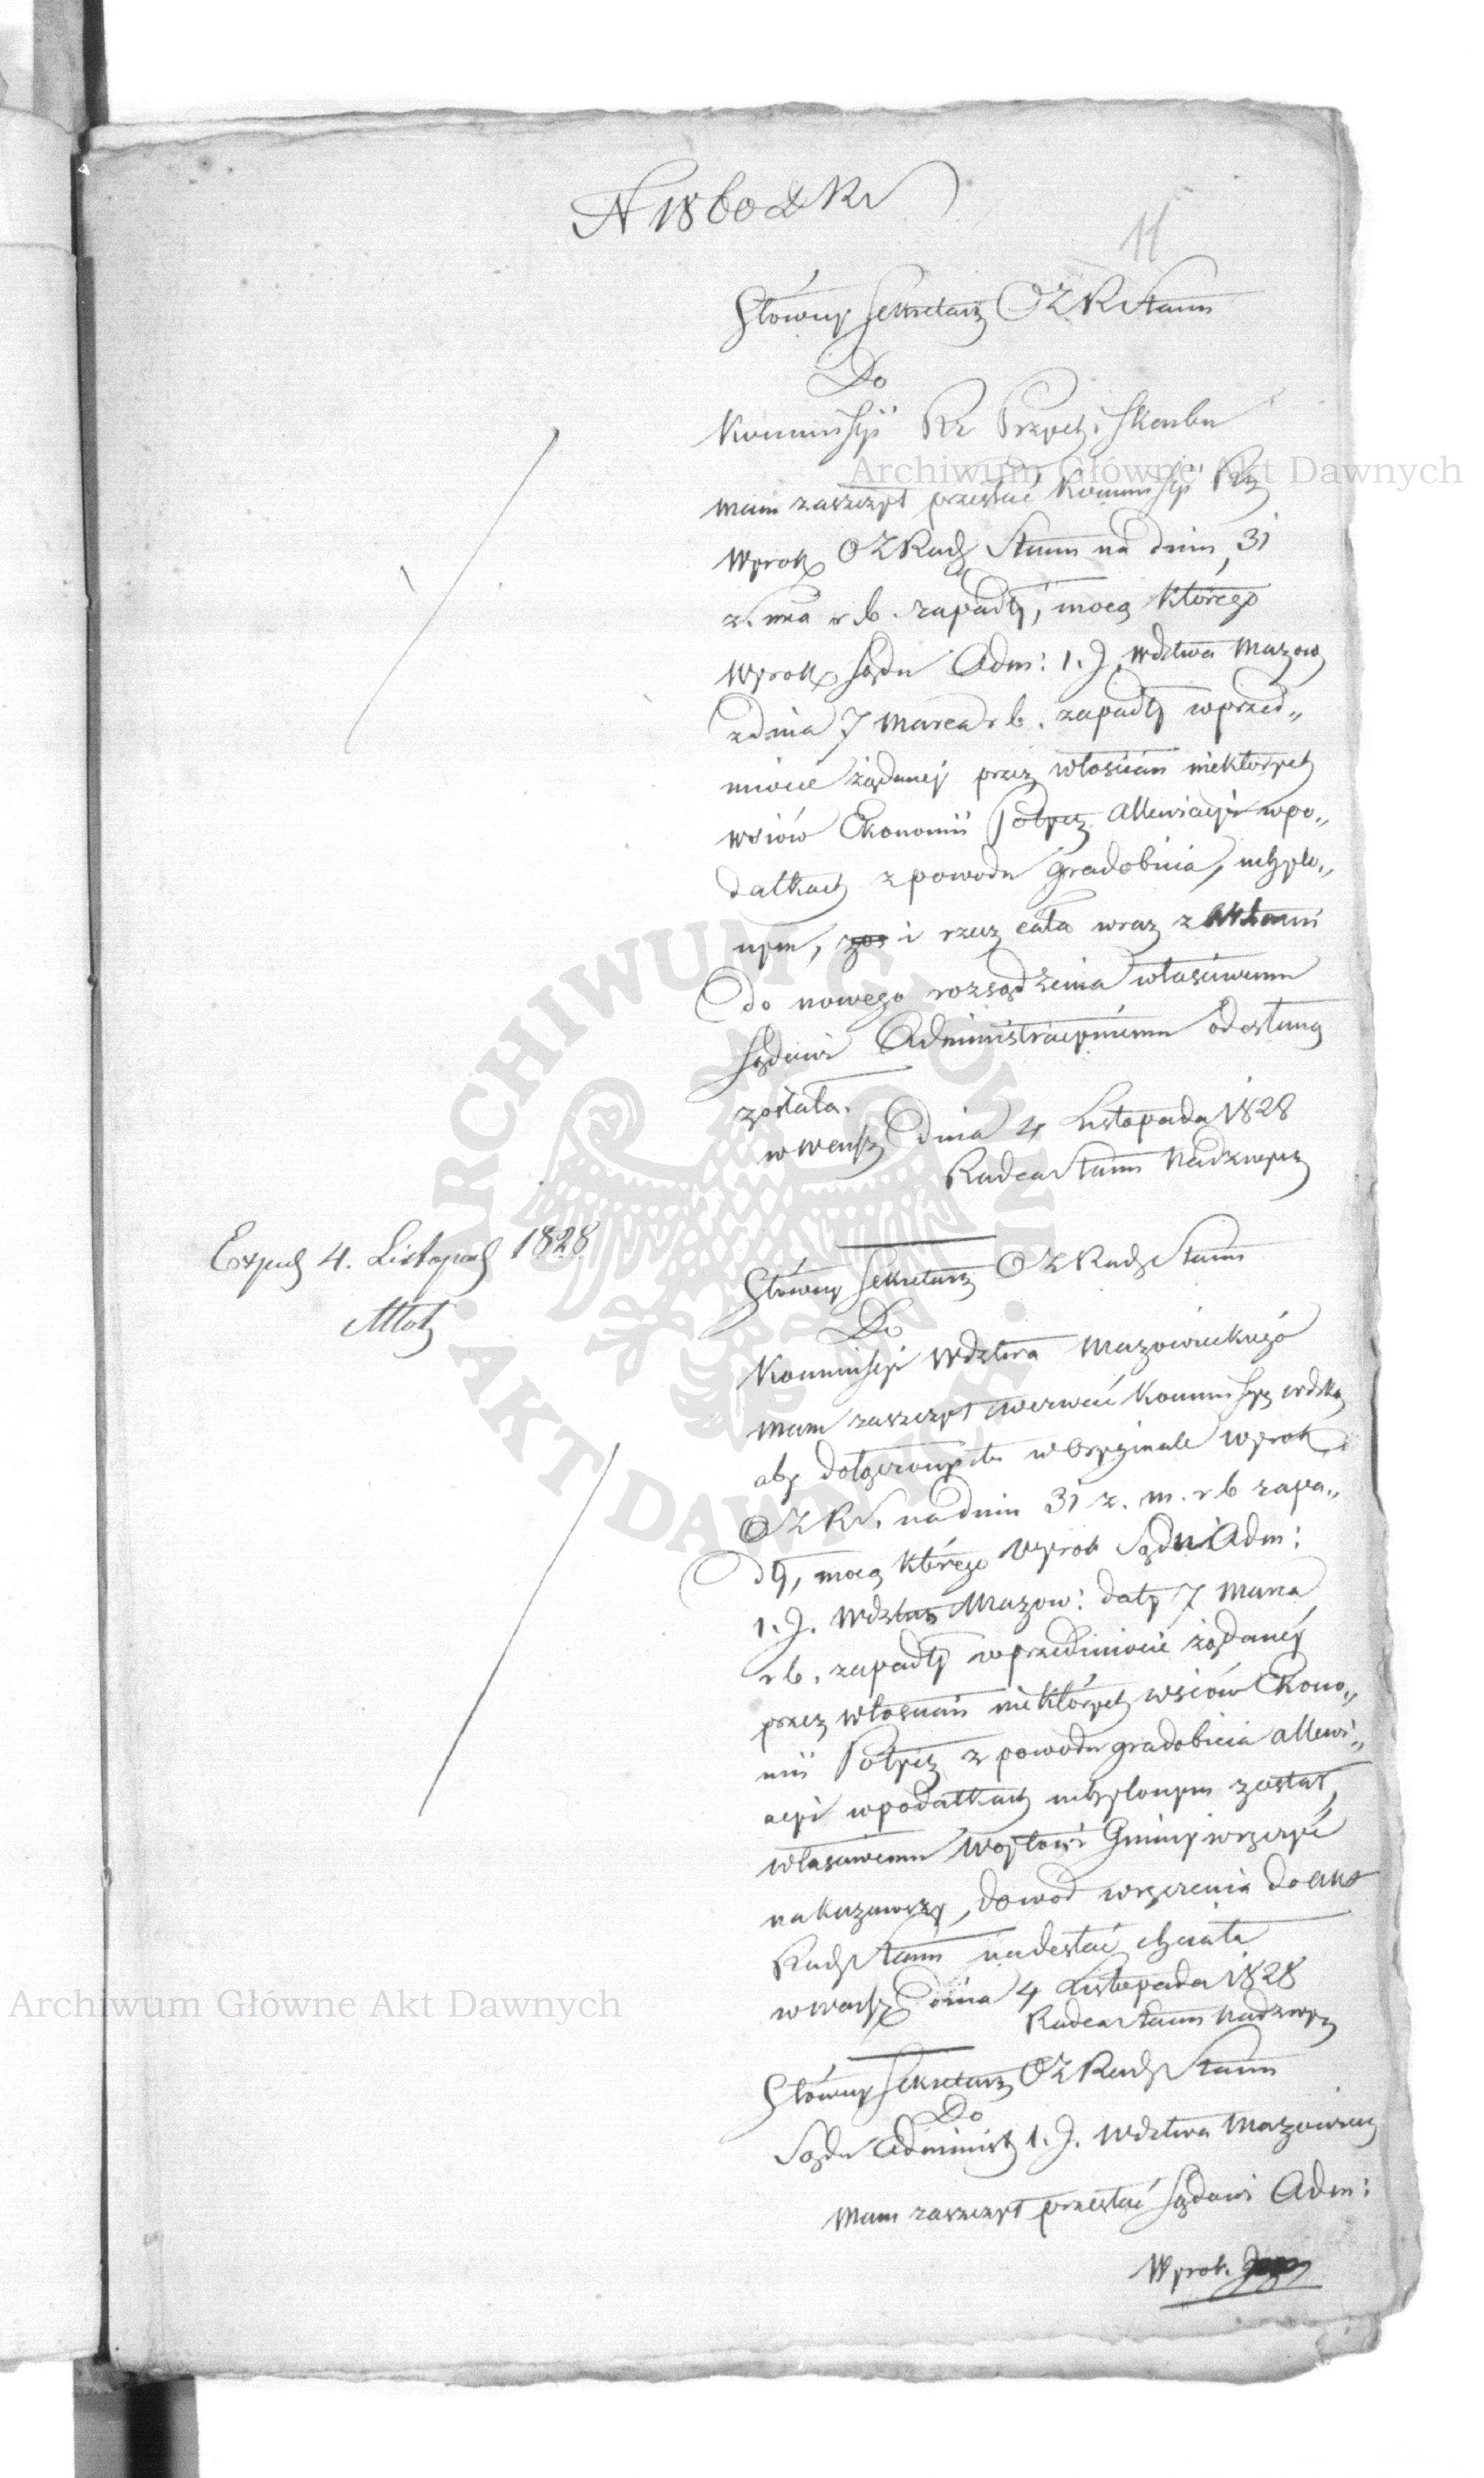 N 18602 R
11
Główny Sekretarz OZRStanu
Do
Kommissyi Rz Przych i Skarbu
Mam zaszczyt przesłać Kommissyi Rz
Wyrok OZRady Stanu na dniu 31
z. mca r b. zapadły, mocą którego
Wyrok Sądu Adm: 1. J. Wdztwa Mazow
z dnia 7 Marca r b. zapadły w przed„
miocie żądaney przez włościan niektórych
wsiów Ekonomii Potycz allewiacyi w po„
datkach z powodu gradobicia, uchylo„
nym, i rzecz cała wraz z Aktami
do nowego rozsądzenia właściwemu
Sądowi Administracyinemu odesłaną
została.
w Warsz dnia 4 Listopada 1828
Radca Stanu Nadzwycz
Exped 4. Listopad 1828
Główny Sekretarz OZRady Stanu
Do
Kommissyi Wdztwa Mazowieckiego
Mam zaszczyt wezwać Kommissyę Wdzką
aby dołączony tu w Oryginale wyrok
OZRS. na dniu 31 z. m. r b zapa„
dły, mocą którego Wyrok Sądu Adm:
1. J. Wdztwa Mazow: daty 7 Marca
r b. zapadły w przedmiocie żądaney
przez włościan niektórych wsiów Ekono„
mii Potycz z powodu gradobicia allewi„
acyi w podatkach uchylonym został,
właściwemu Wóytowi Gminy wręczyć
nakazawszy, dowód wręczenia do akt
Rady Stanu nadesłać chciała
w Warsz dnia 4 Listopada 1828
Radca Stanu Nadzwycz
Główny Sekretarz OZRady Stanu
Do
Sądu Administ 1. J. Wdztwa Mazowiec
Mam zaszczyt przesłać Sądowi Adm:
Wyrok
Archiwum Główne Akt Dawnych
ARCHIWUM GŁÓWNE AKT DAWNYCH
Archiwum Główne Akt Dawnych